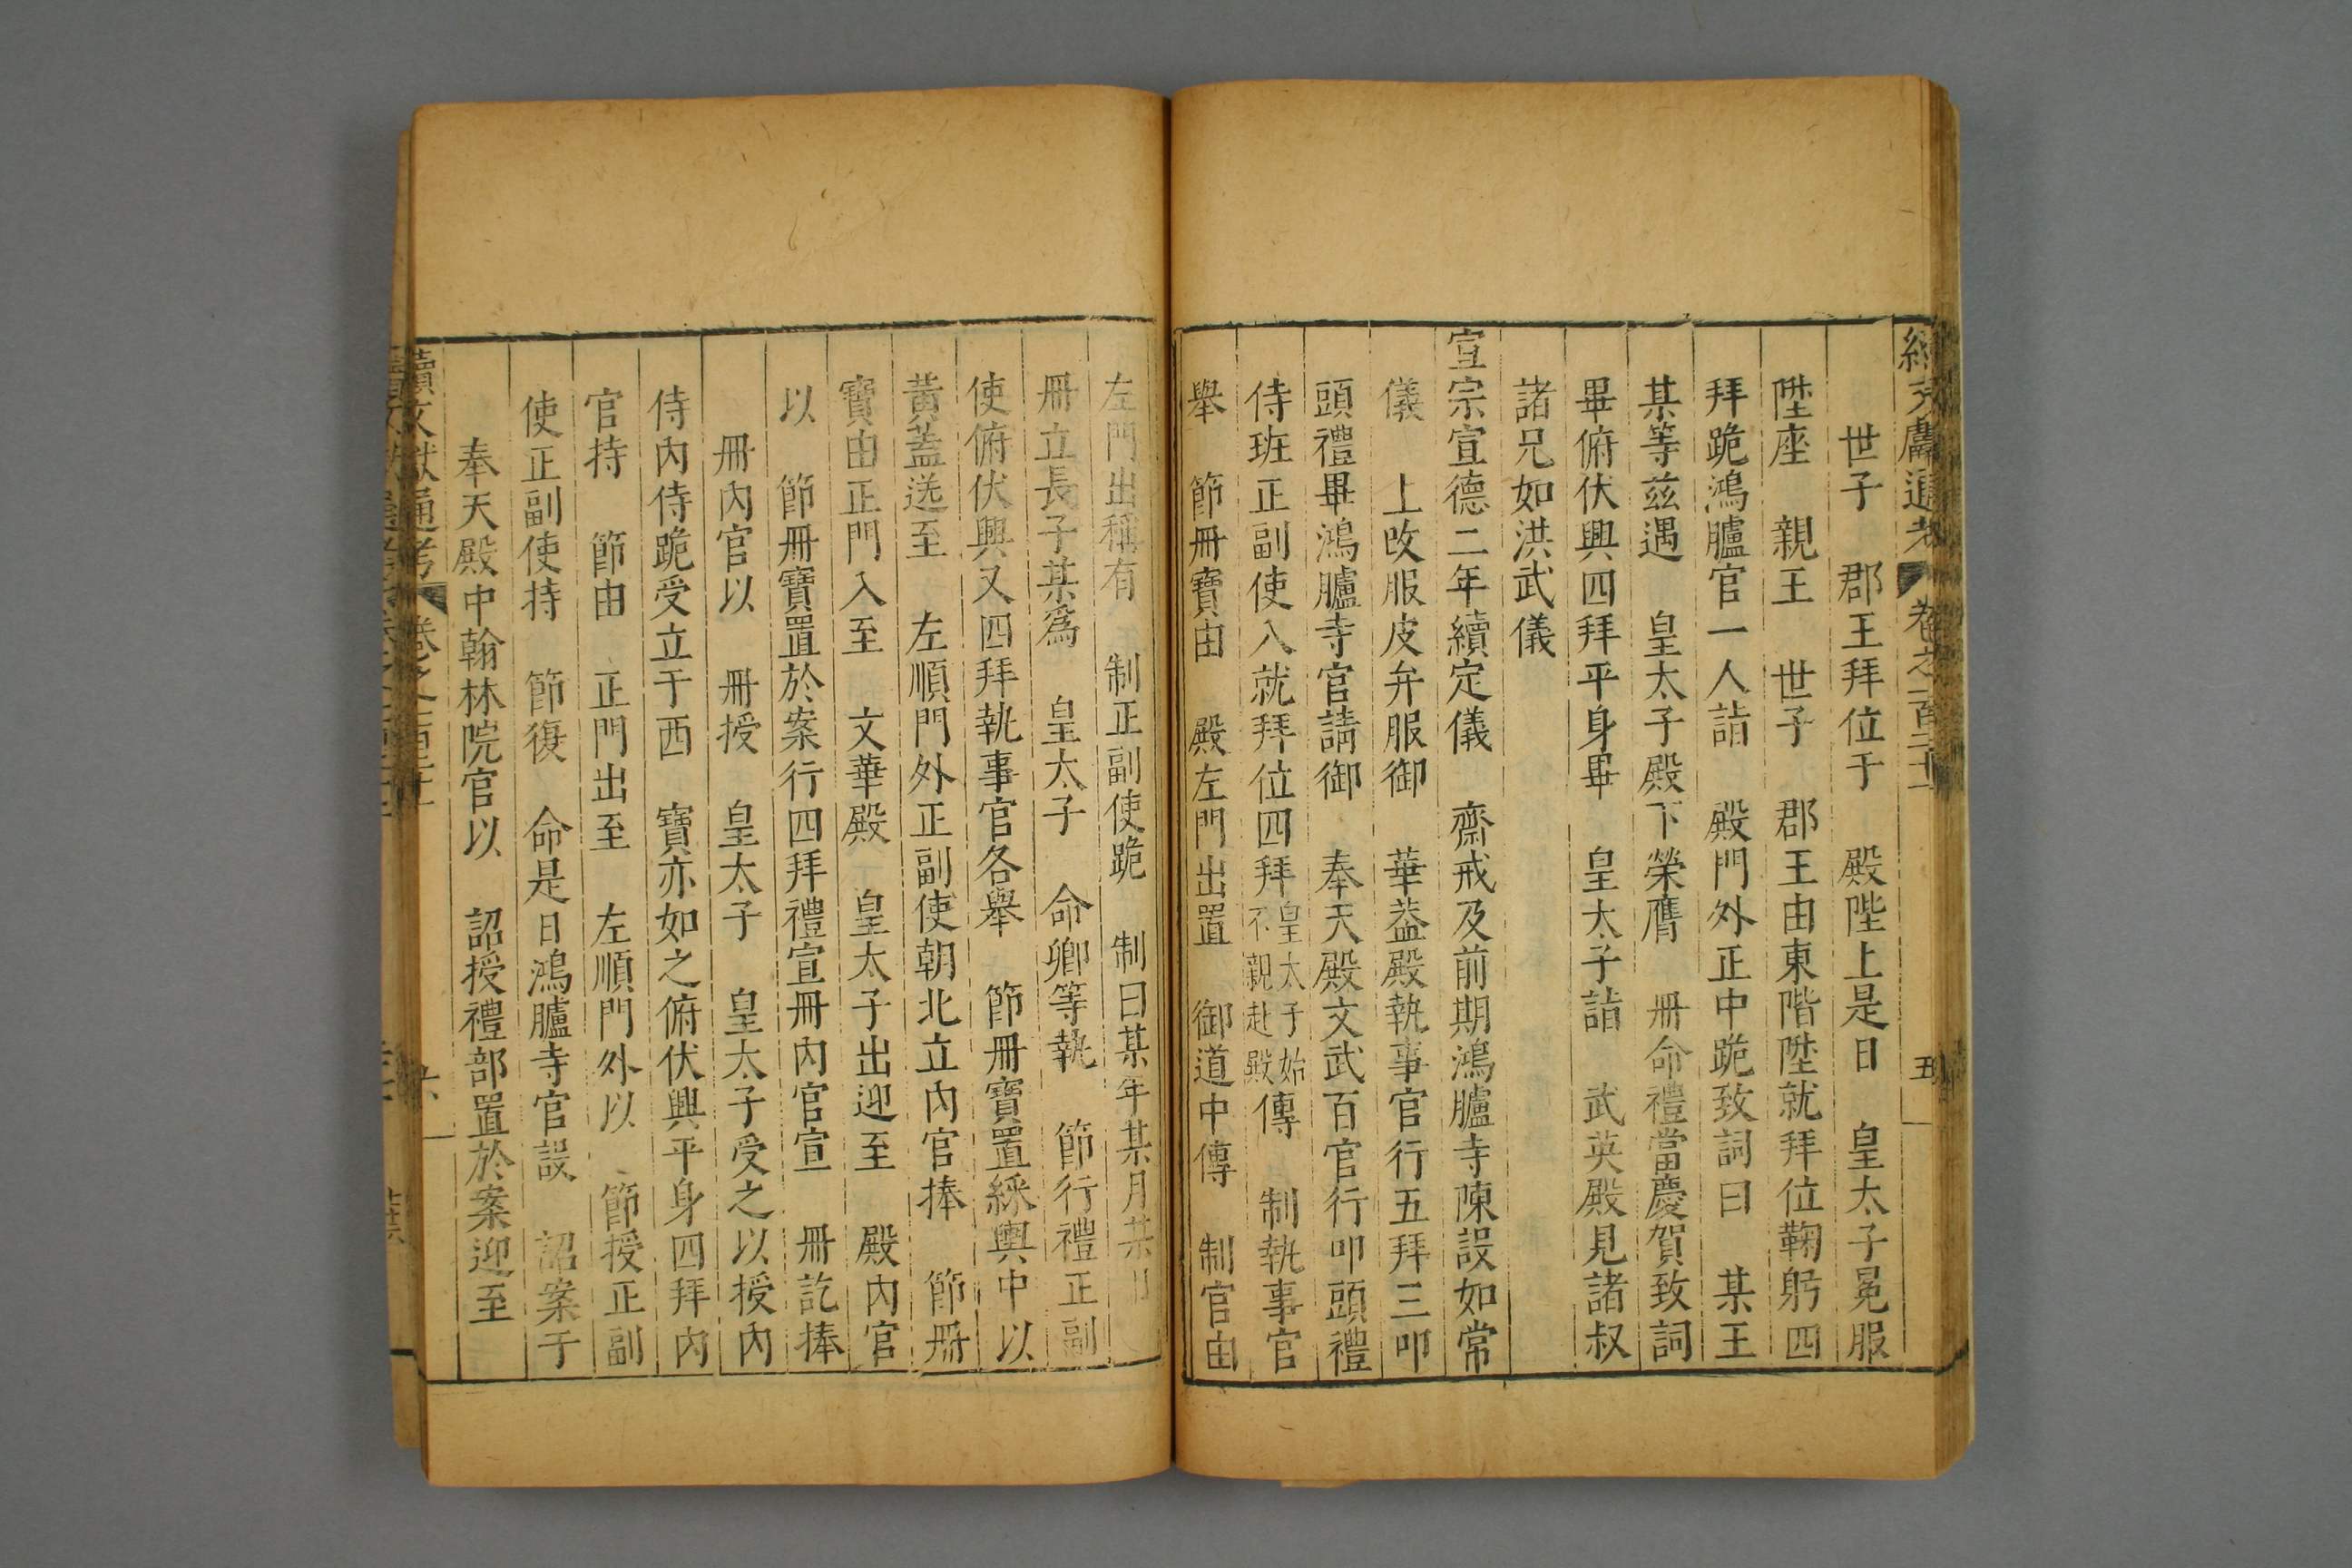 續文獻通考 卷之一百二十 五
世子 郡王拜位于 殿陛上是日 皇太子冕服
陞座 親王 世子 郡王由東階陞就拜位鞠躬四
拜跪鴻臚官一人詣 殿門外正中跪致詞曰 某王
某等茲遇 皇太子殿下榮膺 冊命禮當慶賀致詞
畢俯伏興四拜平身畢 皇太子詣 武英殿見諸叔
諸兄如洪武儀
宣宗宣德二年續定儀 齋戒及前期鴻臚寺陳設如常
儀 上改服皮弁服御 華葢殿執事官行五拜三叩
頭禮畢鴻臚寺官請御 奉天殿文武百官行叩頭禮
侍班正副使入就拜位四拜皇太子始不親赴殿傳 制執事官
舉 節冊寶由 殿左門出置 御道中傳 制官由
左門出稱有 制正副使跪 制曰某年某月某日
冊立長子某爲 皇太子 命卿等執 節行禮正副
使俯伏興又四拜執事官各舉 節冊寶置綵輿中以
黃葢送至 左順門外正副使朝北立內官捧 節冊
寶由正門入至 文華殿 皇太子出迎至 殿內官
以 節冊寶置於案行四拜禮宣冊內官宣 冊訖捧
冊內官以 冊授 皇太子 皇太子受之以授內
侍內侍跪受立于西 寶亦如之俯伏興平身四拜內
官持 節由 正門出至 左順門外以 節授正副
使正副使持 節復 命是日鴻臚寺官設 詔案于
奉天殿中翰林院官以 詔授禮部置於案迎至
續文獻通考 卷之一百二十 六